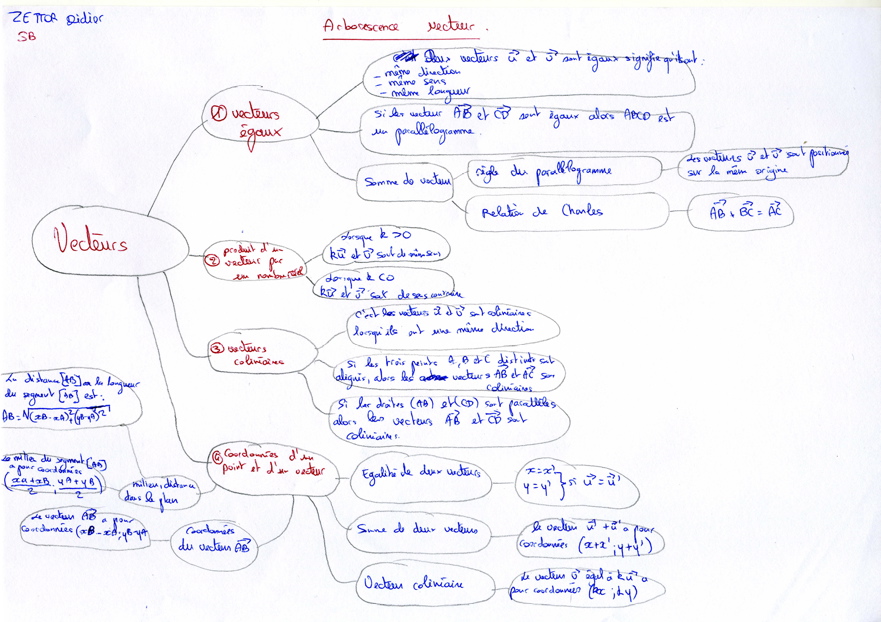 ZETTOR Didier
Arborescence vecteur.
SB
Vecteurs
① vecteurs
égaux
Deux vecteurs u⃗ et v⃗ sont égaux signifie qu'ils ont:
- même direction
- même sens
- même longueur
Si les vecteur AB⃗ et CD⃗ sont égaux alors ABCD est
un parallélogramme.
Somme de vecteurs
règle du parallélogramme
Les vecteurs u⃗ et v⃗ sont positionnés
sur la même origine
Relation de Charles
AB⃗ + BC⃗ = AC⃗
② produit d'un
vecteur par
un nombre réel
Lorsque k > 0
ku⃗ et v⃗ sont de même sens
Lorsque k < 0
ku⃗ et v⃗ sont de sens contraire
③ vecteurs
coliniaires
les vecteurs u⃗ et v⃗ sont coliniaires
lorsqu'ils ont une même direction
Si les trois points A, B et C distincts sont
alignés, alors les vecteurs AB⃗ et AC⃗ son
coliniaires
Si les droites (AB) et (CD) sont parallèles
alors les vecteurs AB⃗ et CD⃗ sont
coliniaires.
④ Coordonnées d'un
point et d'un vecteur
Egalité de deux vecteurs
x = x'
y = y' } si u⃗ = u⃗'
Somme de deux vecteurs
le vecteur u⃗ + u⃗' a pour
coordonnées (x+x' ; y+y')
Vecteur coliniaire
Le vecteur v⃗ égal à ku⃗ a
pour coordonnées (kx ; ky)
La distance [AB] ou la longueur
du segment [AB] est:
AB = √(xB - xA)² + (yB - yA)²
Le milieu du segment [AB]
a pour coordonnées
(xA + xB / 2 ; yA + yB / 2)
milieu, distance
dans le plan
Le vecteur AB⃗ a pour
coordonnées (xB - xA ; yB - yA
Coordonnées
du vecteur AB⃗